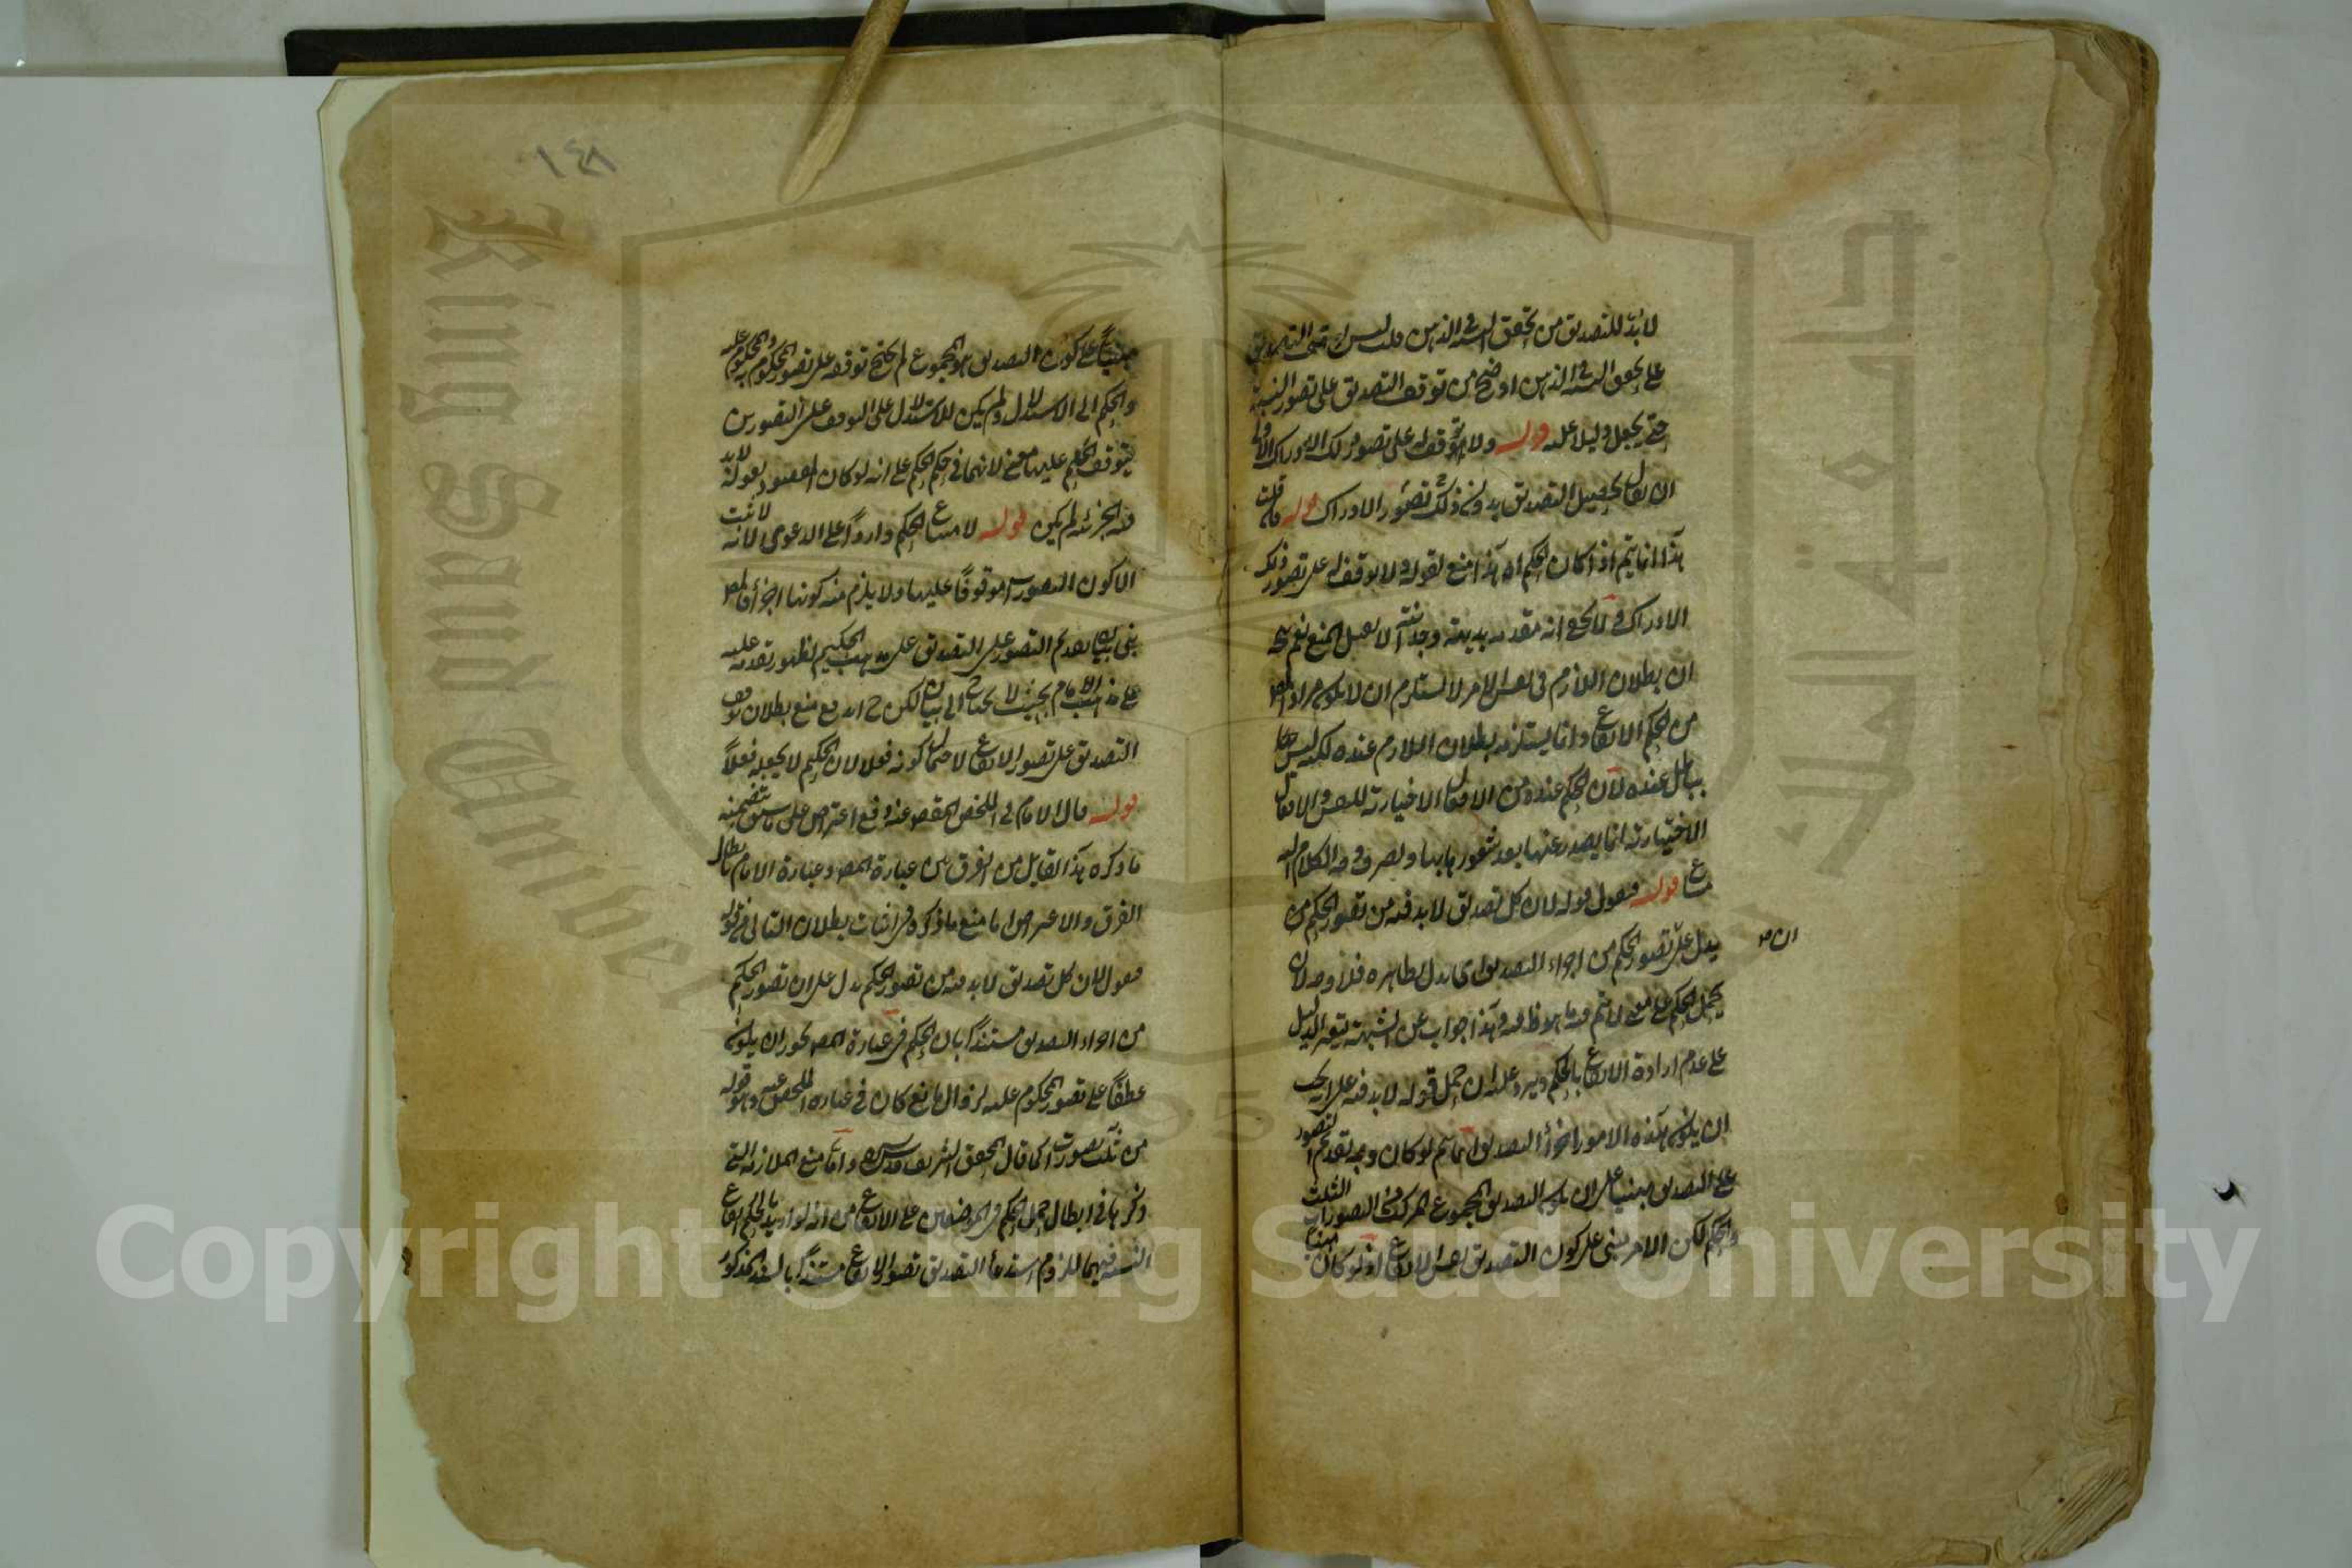 لا بد للتصديق من تحقق النسبة في الذهن وليس اقتضى التصديق
على تحقق النسبة في الذهن اوضح من توقف التصديق على تصور النسبة
حتى يجعل دليلا عليه قوله ولا توقف له على تصور ذلك الادراك الاولى
ان يقال يحصل التصديق بدون ذلك تصور الادراك قوله قلت
هذا انما يتم اذا كان الحكم اه هذا منع لقوله ولا توقف له على تصور ذلك
الادراك ولا يخفى انه مقدمة بديهية وجدانية لا يقبل المنع نعم
ان بطلان اللازم في نفس الامر لا يستلزم ان لا يكون مراد المص
من الحكم الايقاع وانما يستلزمه بطلان اللازم عنده لكنه ليس
بباطل عنده لان الحكم عنده من الافعال الاختيارية للنفس والافعال
الاختيارية انما يصدر عنها بعد شعورها بها
قوله فنقول قوله لان كل تصديق لا بد فيه من تصور الحكم
يدل على تصور الحكم من اجزاء التصديق اى يدل بظاهره فلا وجه لان
ان صح
يحمل الحكم على معنى لا يتم فيه ما هو ظاهره وهذا جواب عن الشبهة
على عدم ارادة الايقاع بالحكم ويرد عليه ان حمل قوله لا بد فيه على انه يجب
ان يكون هذه الامور اجزاء التصديق انما يتم لو كان وجه تقدم التصور
على التصديق مبنيا على ان يكون التصديق المجموع المركب من التصورات الثلث
والحكم لكن الامر مبنى على كون التصديق نفس الايقاع اذ لو كان مبنيا
مبنيا على كون التصديق هو المجموع لم يحتج توقفه على تصور المحكوم به والمحكوم عليه
والحكم الى الاستدلال ولم يكن للاستدلال على التوقف على التصورين
بتوقف الحكم عليهما معنى لانهما في حكم الحكم على انه لو كان المقصود بقوله لا بد
فيه الجزئية لم يكن قوله لامتناع الحكم واردا على الدعوى لانه لا يثبت
الا كون التصورين موقوفا عليهما ولا يلزم منه كونهما اجزاء
بقى بيان تقدم التصور على التصديق على مذهب الحكيم لظهور تقدمه عليه
على مذهب الامام بحيث لا يحتاج الى بيان لكن ح اندفع منع بطلان توقف
التصديق على تصور الايقاع لاحتمال كونه فعلا لان الحكيم لا يجعله فعلا
قوله قال الامام في الملخص المقصود منه دفع اعتراض على ما سبق بتضمنه
ما ذكره هذا القائل من الفرق بين عبارة المص وعبارة الامام بابطال
الفرق والاعتراض اما منع ما ذكره في اثبات بطلان التالى في قوله
فنقول لان كل تصديق لا بد فيه من تصور الحكم يدل على ان تصور الحكم
من اجزاء التصديق مستندا بان الحكم في عبارة المص يجوز ان يكون
عطفا على تصور المحكوم عليه لزوال مانع كان في عبارة الملخص عنه وهو قوله
من ثلث تصورات كما قال المحقق الشريف قدس سره واما منع الملازمة التى
ذكرها في ابطال حمل الحكم في الموضعين على الايقاع من انه لو اريد بالحكم ايقاع
النسبة فيهما للزم استدعاء التصديق تصور الايقاع مستندا بالسند المذكور
١٤٨
Copyright © King Saud University
King Saud University
جامعة الملك سعود